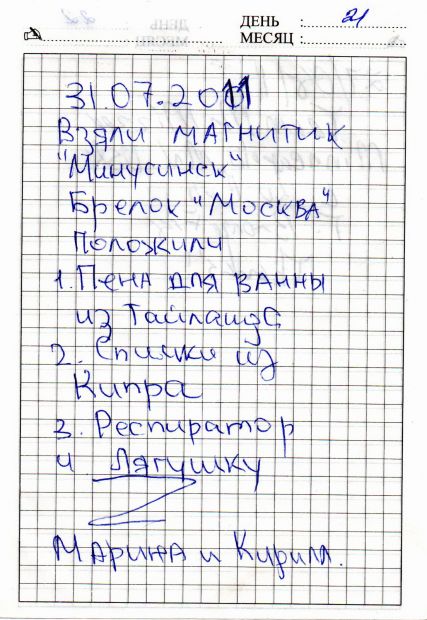 ДЕНЬ : 21
МЕСЯЦ :
31.07.2011
Взяли магнитик
"Минусинск"
Брелок "Москва"
Положили
1. Пена для ванны
из Тайланда
2. Спички из
Кипра
3. Респиратор
4. Лягушку
Марина и Кирилл.